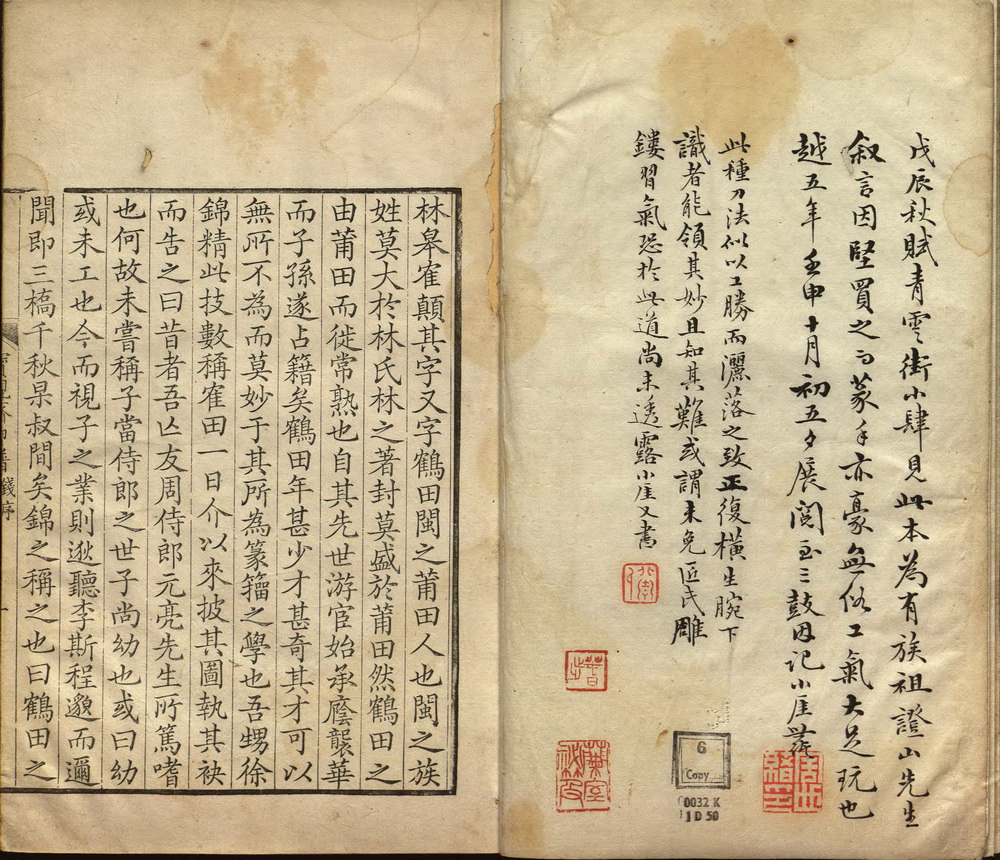 戊辰秋賦青雲街小肆見此本為有族祖證山先生
叙言因堅買之而篆手亦豪無俗工氣大足玩也
越五年壬申十月初五夕展閱至三鼓因記小厓
此種刀法似以工勝而灑落之致正復橫生腕下
識者能領其妙且知其難或謂未免匠氏雕
鏤習氣恐於此道尚未透露小厓又書
6
Copy
0032 K
1 D 50
林皋寉顛其字又字鶴田閩之莆田人也閩之族
姓莫大於林氏林之著封莫盛於莆田然鶴田之
由莆田而徙常熟也自其先世游宦始承廕襲華
而子孫遂占籍矣鶴田年甚少才甚奇其才可以
無所不為而莫妙于其所為篆籀之學也吾甥徐
錦精此技數稱寉田一日介以來披其圖執其袂
而告之曰昔者吾亾友周侍郎元亮先生所篤嗜
也何故未嘗稱子當侍郎之世子尚幼也或曰幼
或未工也今而視子之業則逖聽李斯程邈而邇
聞即三橋千秋杲叔間矣錦之稱之也曰鶴田之